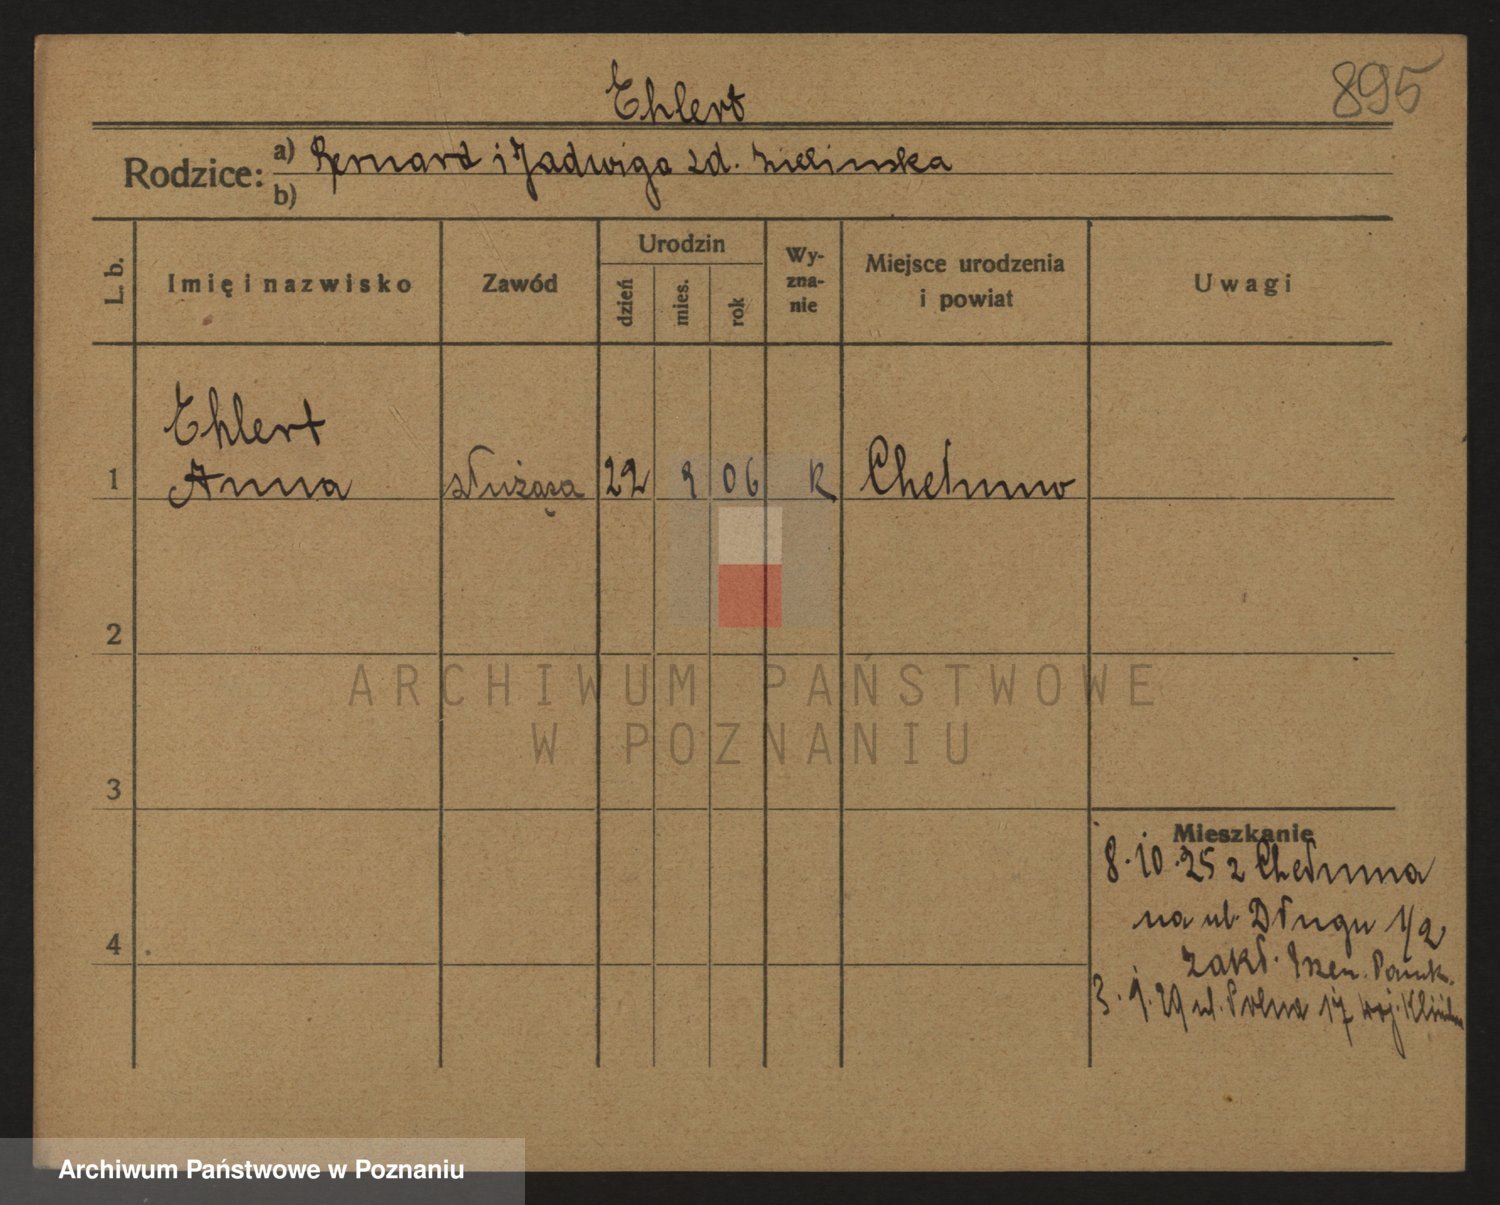 895
Ehlert
Rodzice: a) Bernard i Jadwiga zd. Zielinska
b)
L. b.
Imię i nazwisko
Zawód
Urodzin
dzień
mies.
rok
Wy-
zna-
nie
Miejsce urodzenia
i powiat
Uwagi
Ehlert
1 Anna służąca 22 9 06 K Chełmno
2
3
4
Mieszkanie
8.10.25 z Chełmna
na ul. Długa 1/2
zakł.
3. 9. 29 ul. Polna 17 woj.
ARCHIWUM PAŃSTWOWE
W POZNANIU
Archiwum Państwowe w Poznaniu